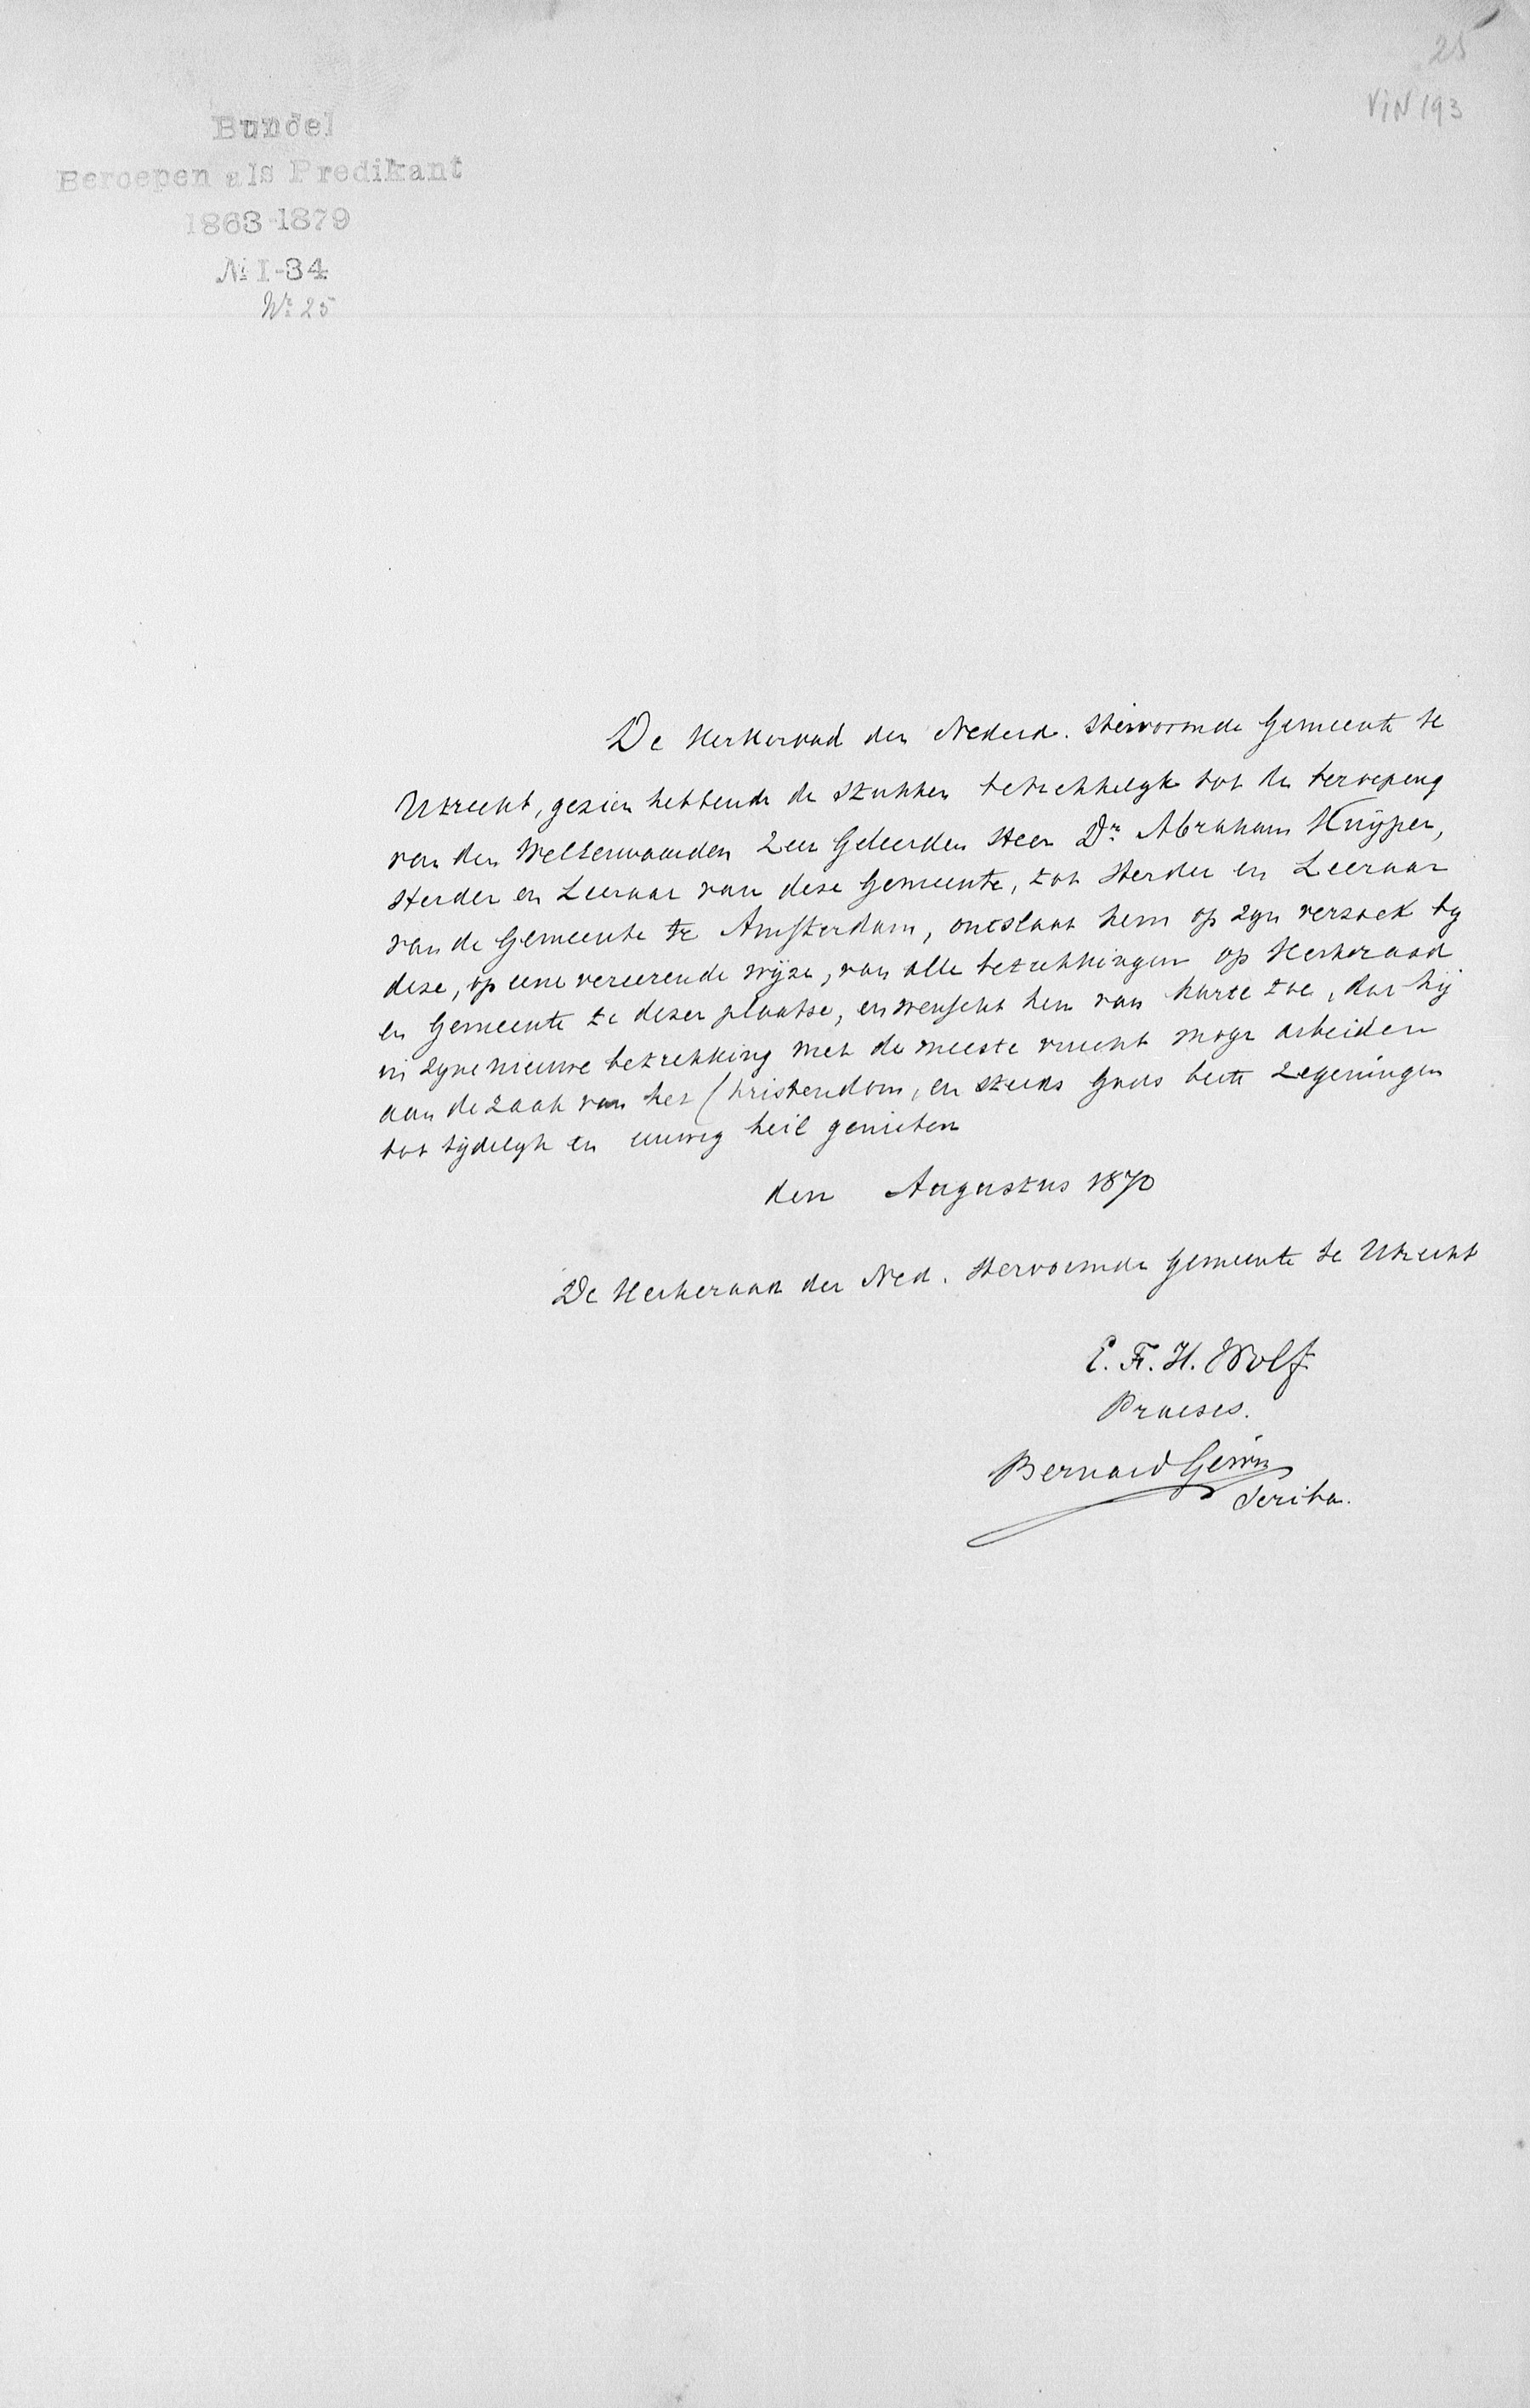 25
VIN 193
Bundel
Beroepen als Predikant
1863-1879
№ I-34
Nº 25
De Kerkeraad der Nederd. Hervormde Gemeente te
Utrecht, gezien hebbende de stukken betrekkelyk tot de beroeping
van den WelEerwaarden Zeer Geleerden Heer Dr. Abraham Kuijper,
Herder en Leeraar van deze Gemeente, tot Herder en Leeraar
van de Gemeente te Amsterdam, ontslaat hem op zyn verzoek by
deze, op eene vereerende wijze, van alle betrekkingen op Kerkeraad
en Gemeente te dezer plaatse, en wenscht hem van harte toe, dat hij
in zyne nieuwe betrekking met de meeste vrucht moge arbeiden
aan de zaak van het Christendom, en steeds Gods beste zegeningen
tot tijdelyk en eeuwig heil genieten
den Augustus 1870
De Kerkeraad der Ned. Hervormde Gemeente te Utrecht
E. F. H. Wolf
Praeses.
Bernard Gewin
Scriba.